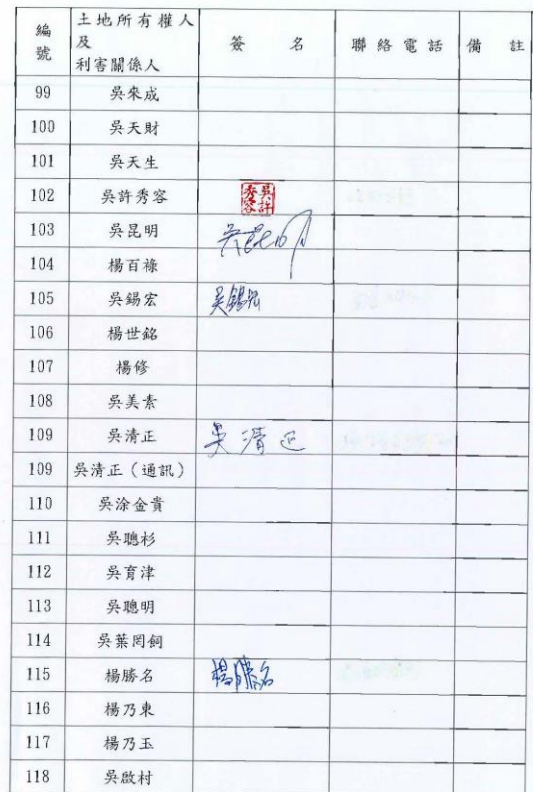 編號 土地所有權人及利害關係人 簽名 聯絡電話 備註
99 吳來成
100 吳天財
101 吳天生
102 吳許秀容 吳許秀容
103 吳昆明 吳昆明
104 楊百祿
105 吳錫宏 吳錫宏
106 楊世銘
107 楊修
108 吳美素
109 吳清正 吳清正
109 吳清正（通訊）
110 吳涂金貴
111 吳聰杉
112 吳育津
113 吳聰明
114 吳葉罔飼
115 楊勝名 楊勝名
116 楊乃東
117 楊乃玉
118 吳啟村